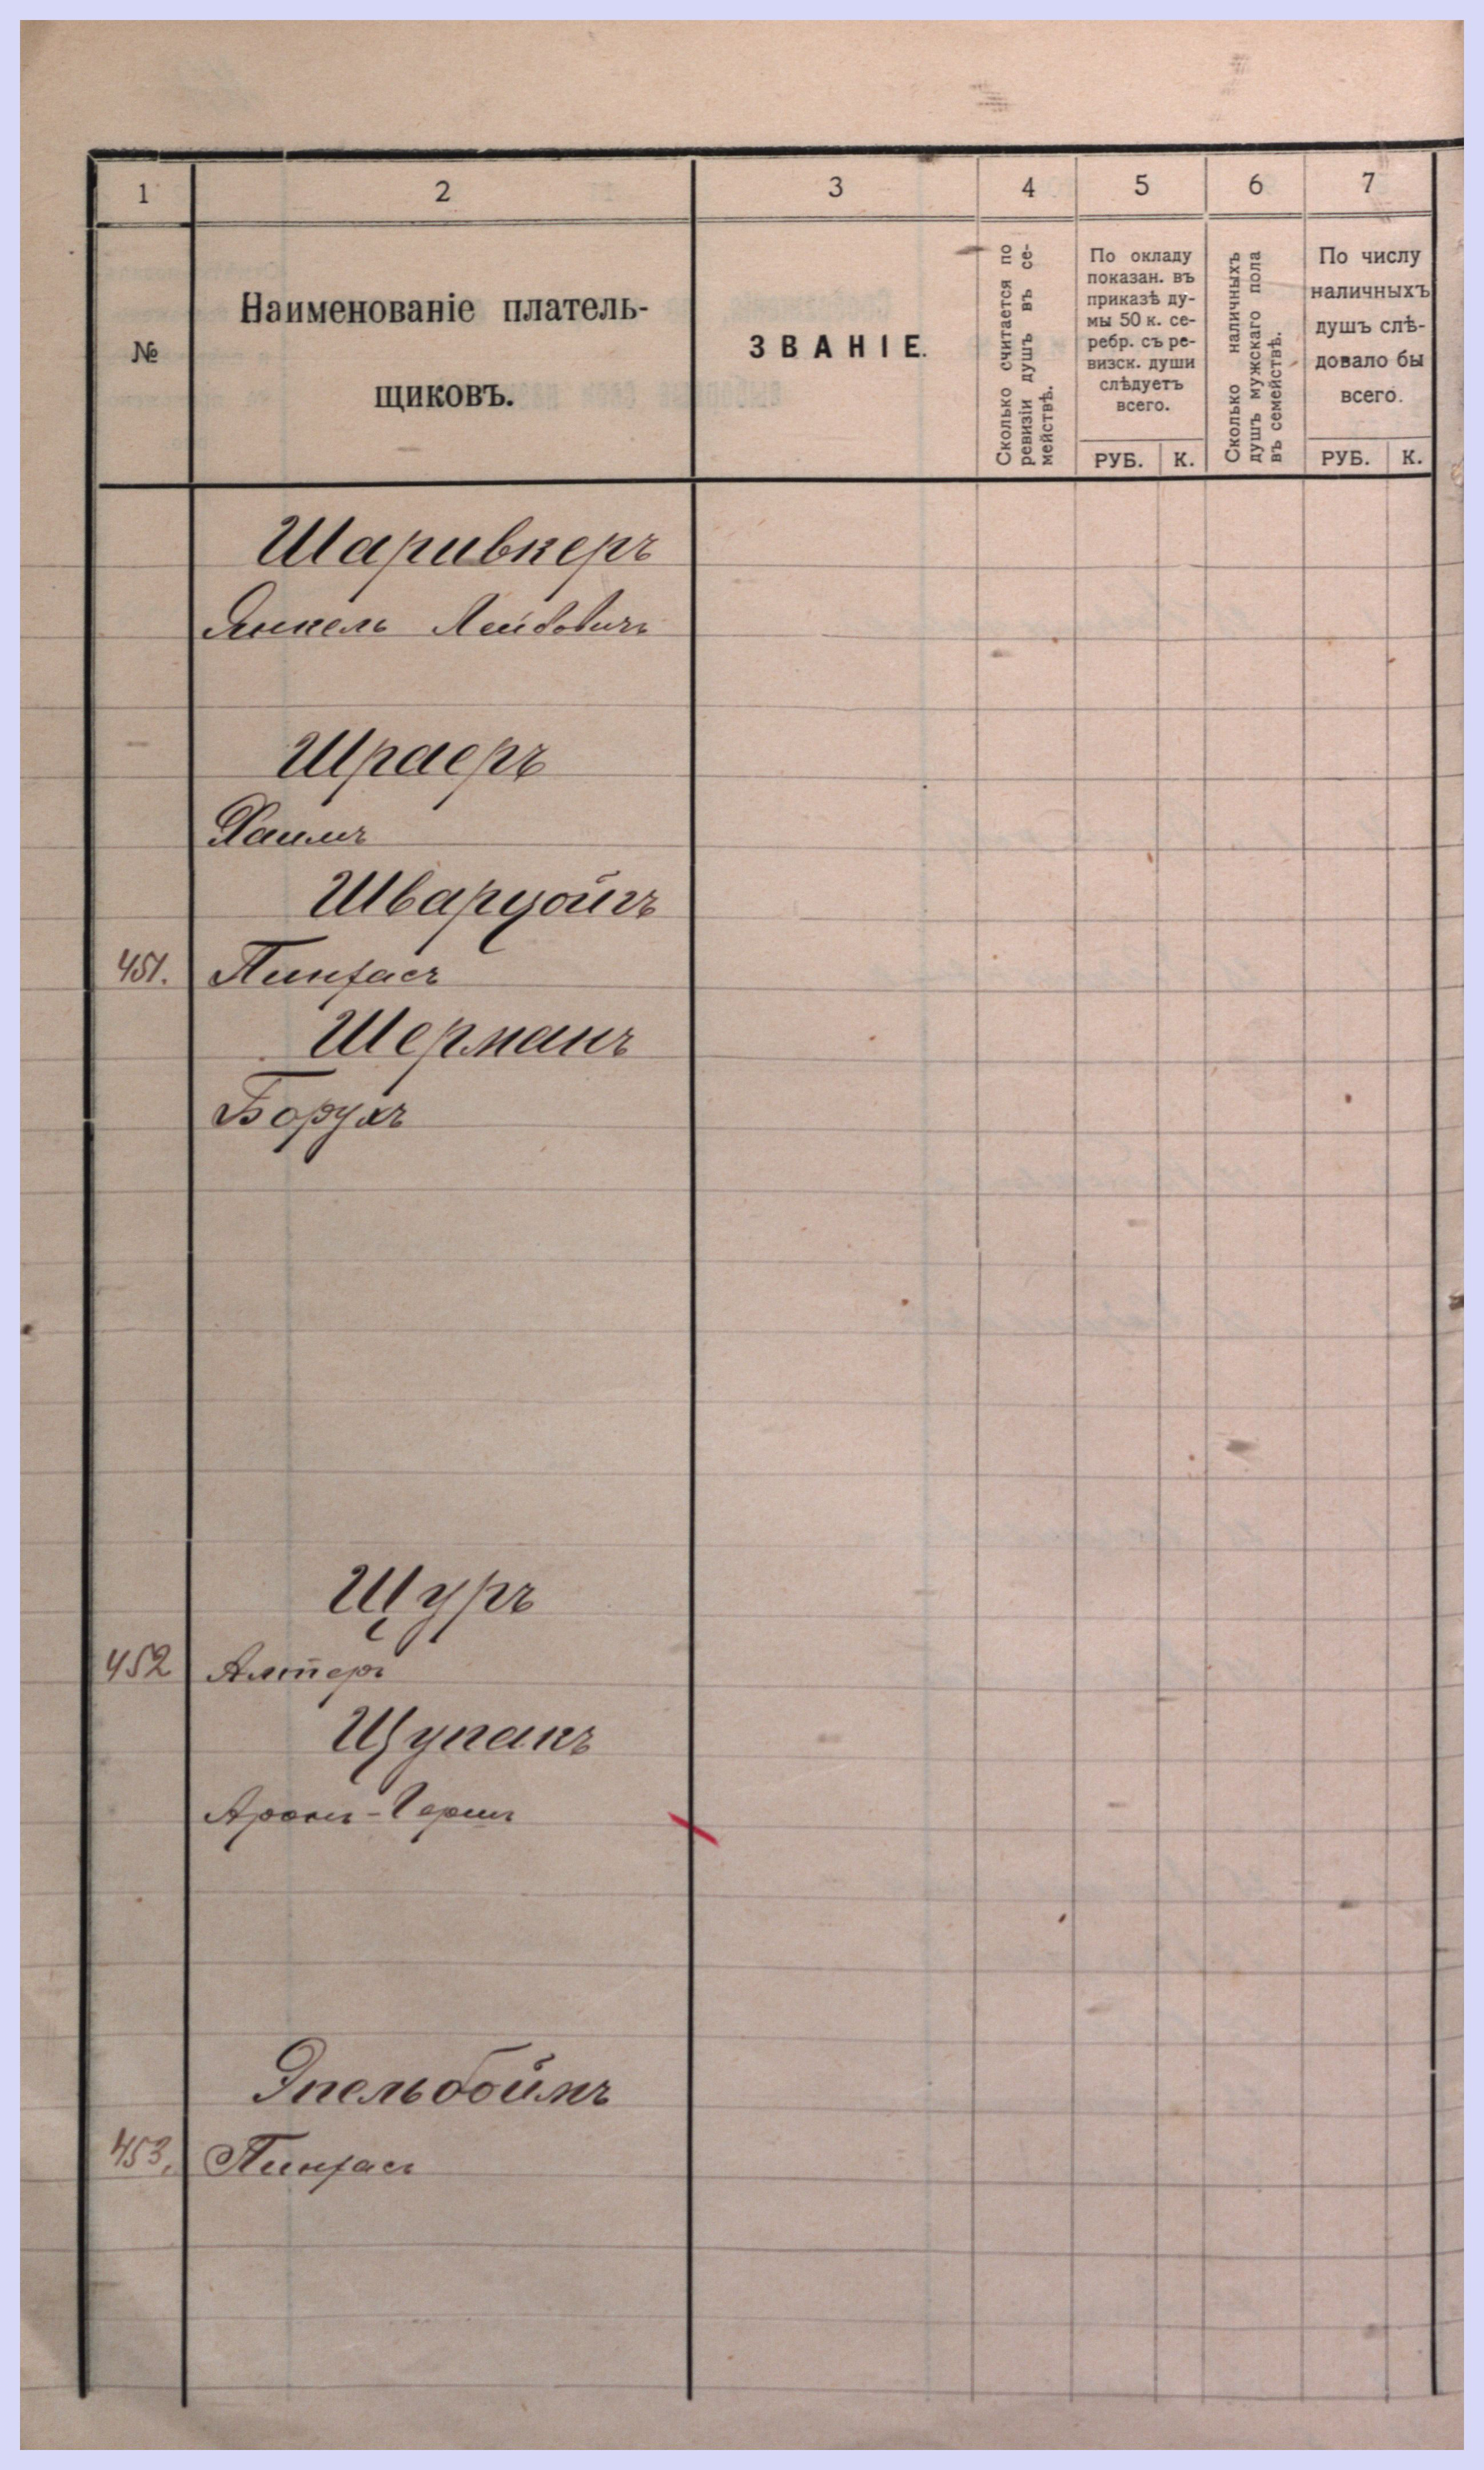 1 2 3 4 5 6 7
№
Наименованіе платель-
щиковъ.
ЗВАНІЕ.
Сколько считается по
ревизіи душъ въ се-
мействѣ.
По окладу
показан. въ
приказѣ ду-
мы 50 к. се-
ребр. съ ре-
визск. души
слѣдуетъ
всего.
РУБ. К.
Сколько наличныхъ
душъ мужскаго пола
въ семействѣ.
По числу
наличныхъ
душъ слѣ-
довало бы
всего.
РУБ. К.
Шаривкеръ
Янкель Лейбовичъ
Шраеръ
Хаимъ
Шварцойгъ
451. Пинхасъ
Шерманъ
Борухъ
Щуръ
452 Алтеръ
Щупакъ
Аронъ-Гершъ
Эпельбоймъ
453. Пинхасъ